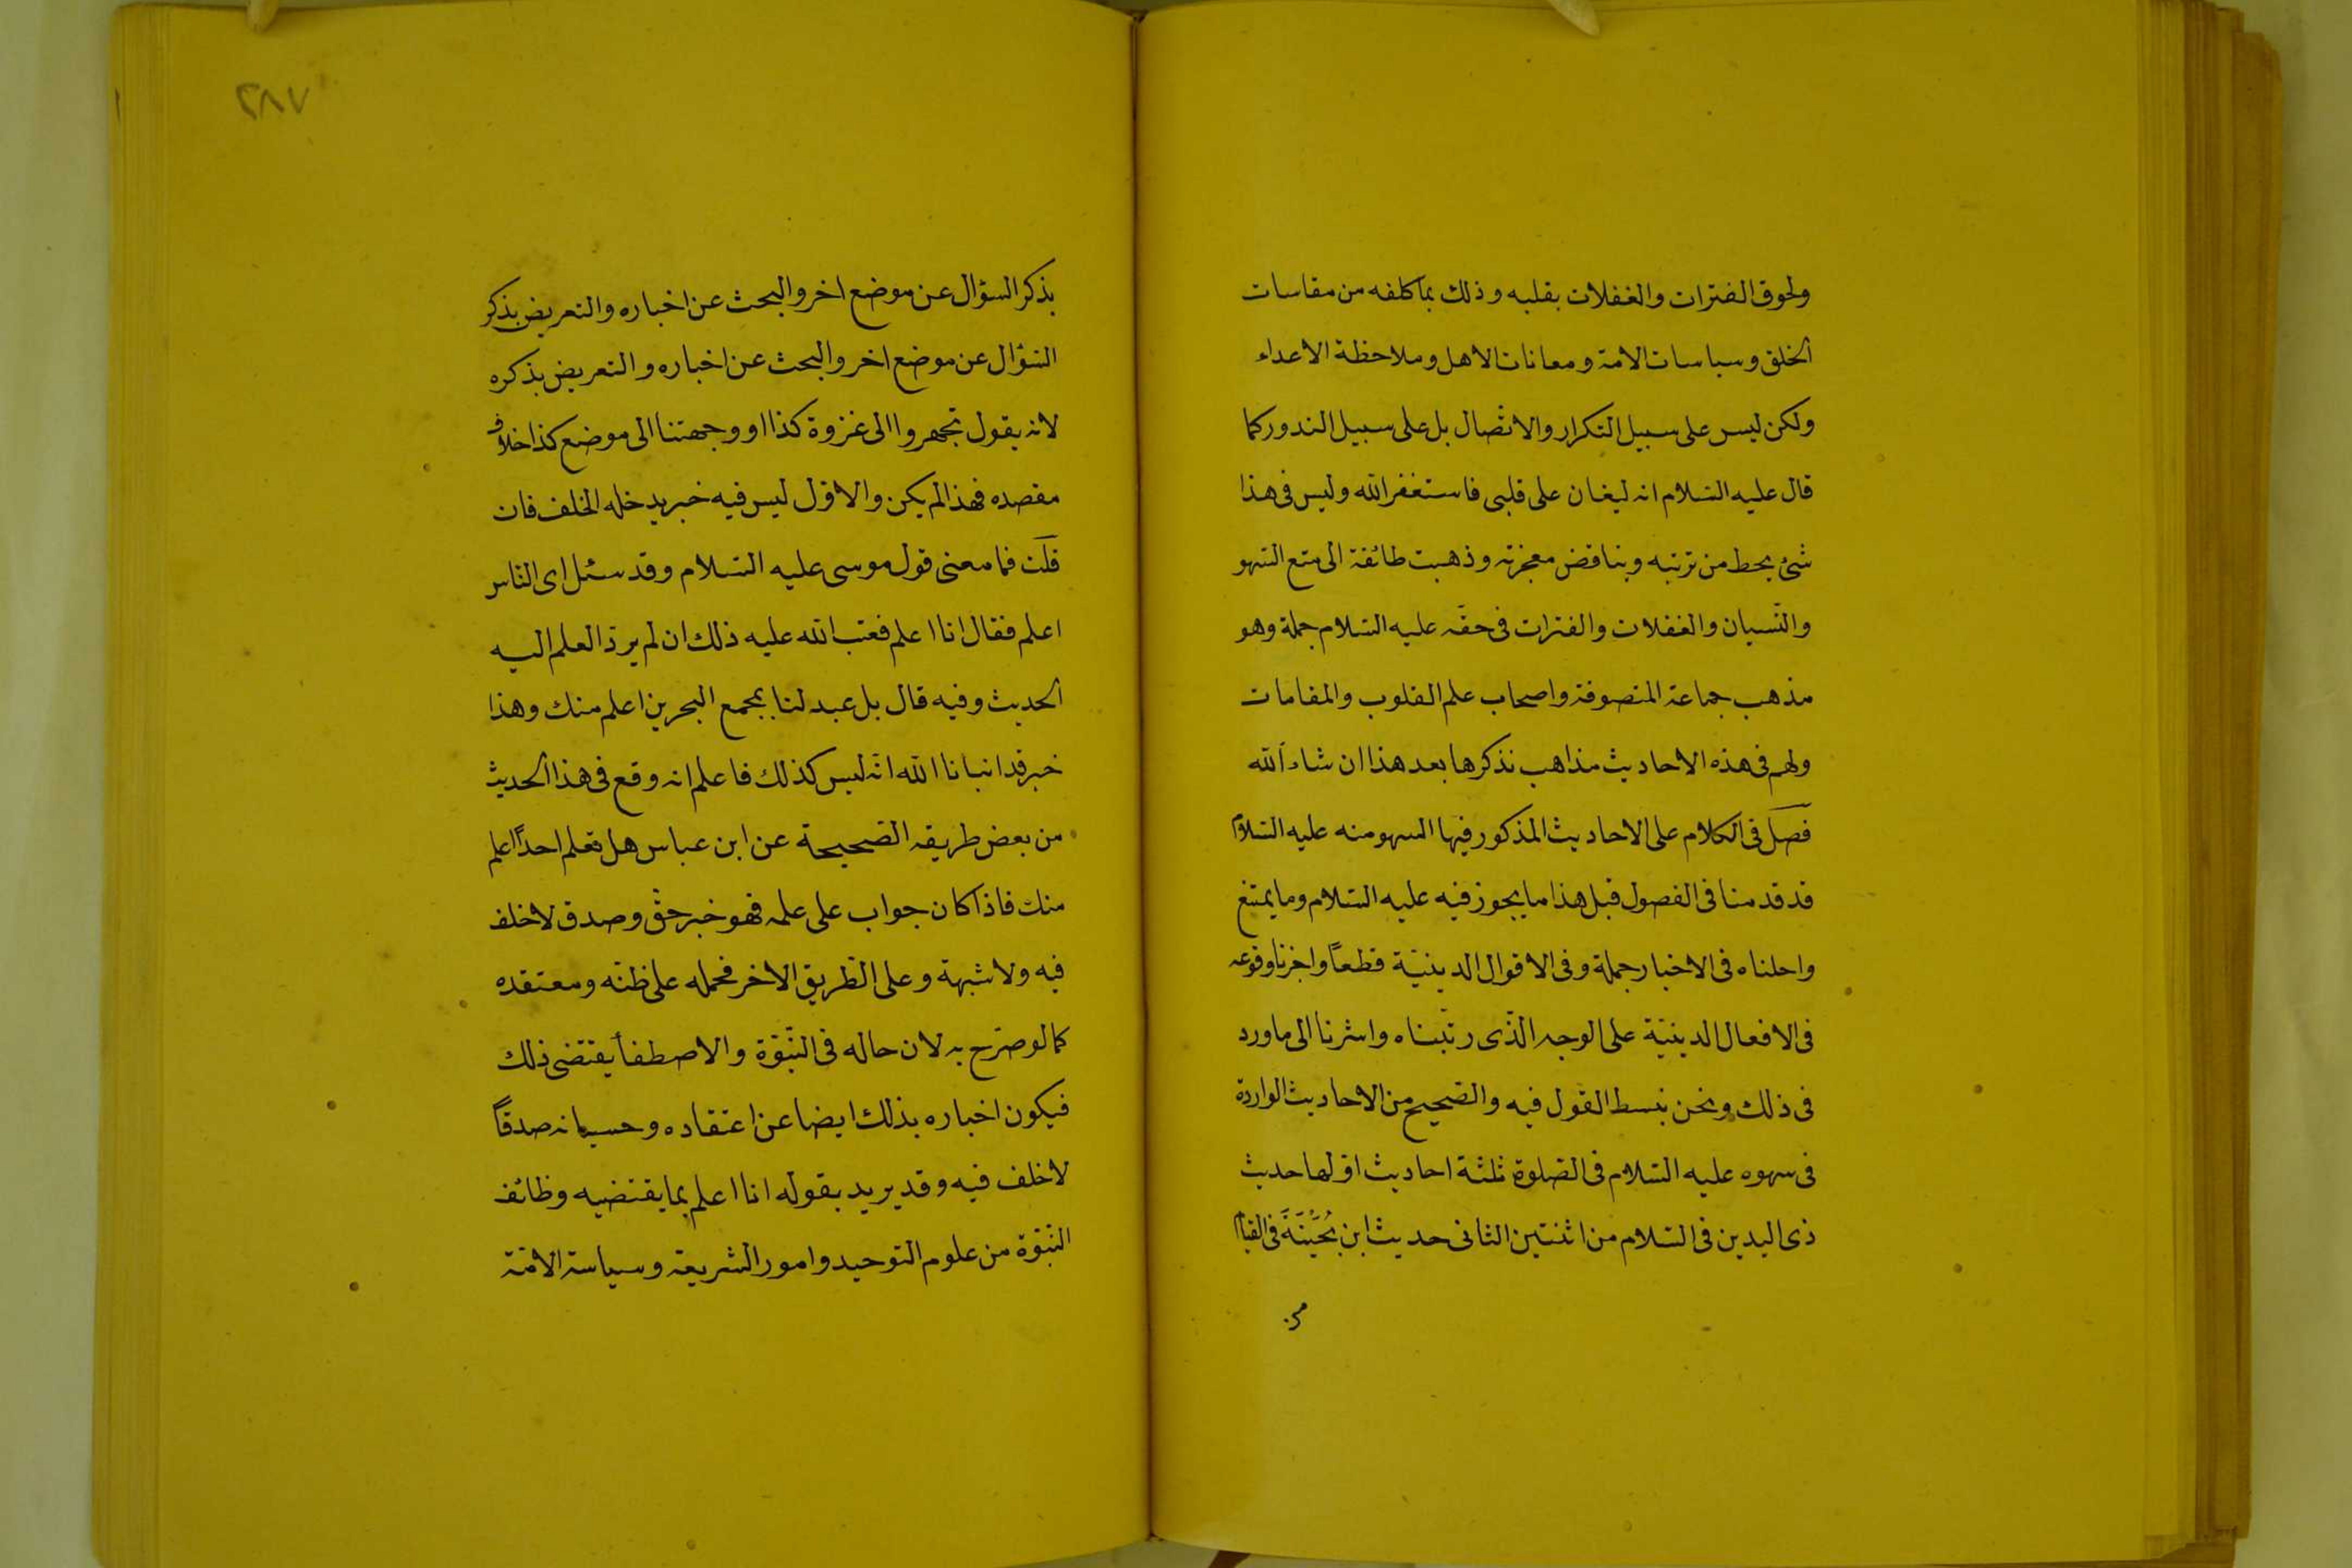 ولحوق الفترات والغفلات بقلبه وذلك بما كلفه من مقاسات
الخلق وسياسات الامة ومعانات الاهل وملاحظة الاعداء
ولكن ليس على سبيل التكرار والاتصال بل على سبيل الندور كما
قال عليه السّلام انه ليغان على قلبى فاستغفر الله وليس فى هذا
شئ يحط من رتبته ويناقض معجزته وذهبت طائفة الى منع السّهو
والنّسيان والغفلات والفترات فى حقّه عليه السّلام جملة وهو
مذهب جماعة المتصوفة واصحاب علم القلوب والمقامات
ولهم فى هذه الاحاديث مذاهب نذكرها بعد هذا ان شاء الله
فصل فى الكلام على الاحاديث المذكور فيها السهو منه عليه السّلام
قد قدمنا فى الفصول قبل هذا ما يجوز فيه عليه السّلام وما يمتنع
واحلناه فى الاخبار جملة وفى الاقوال الدينيّة قطعاً واجزنا وقوعه
فى الافعال الدينيّة على الوجه الّذى رتّبناه واشرنا الى ما ورد
فى ذلك ونحن نبسط القول فيه والصّحيح من الاحاديث الواردة
فى سهوه عليه السّلام فى الصّلوة ثلثة احاديث اوّلها حديث
ذى اليدين فى السّلام من اثنتين الثانى حديث ابن بُحَيْنَةَ فى القيام
من
٢٨٧
بذكر السؤال عن موضع اخر والبحث عن اخباره والتعريض بذكر
السّؤال عن موضع اخر والبحث عن اخباره والتعريض بذكره
لانه يقول تجهروا الى غزوة كذا او وجهتنا الى موضع كذا خلاف
مقصده فهذا لم يكن والاوّل ليس فيه خبر يدخله الخلف فان
قلت فما معنى قول موسى عليه السّلام وقد سئل اى النّاس
اعلم فقال انا اعلم فعتب الله عليه ذلك ان لم يردّ العلم اليه
الحديث وفيه قال بل عبد لنا بمجمع البحرين اعلم منك وهذا
خبر قد انبانا الله انّه ليس كذلك فاعلم انه وقع فى هذا الحديث
من بعض طريقه الصّحيحة عن ابن عباس هل تعلم احداً اعلم
منك فاذا كان جواب على علمه فهو خبر حقّ وصدق لا خلف
فيه ولا شبهة وعلى الطّريق الاخر فحمله على ظنّه ومعتقده
كما لو صرّح به لان حاله فى النّبوّة والاصطفأ يقتضى ذلك
فيكون اخباره بذلك ايضا عن اعتقاده وحسبانه صدقاً
لا خلف فيه وقد يريد بقوله انا اعلم بما يقتضيه وظائف
النّبوّة من علوم التوحيد وامور الشريعة وسياسة الامّة